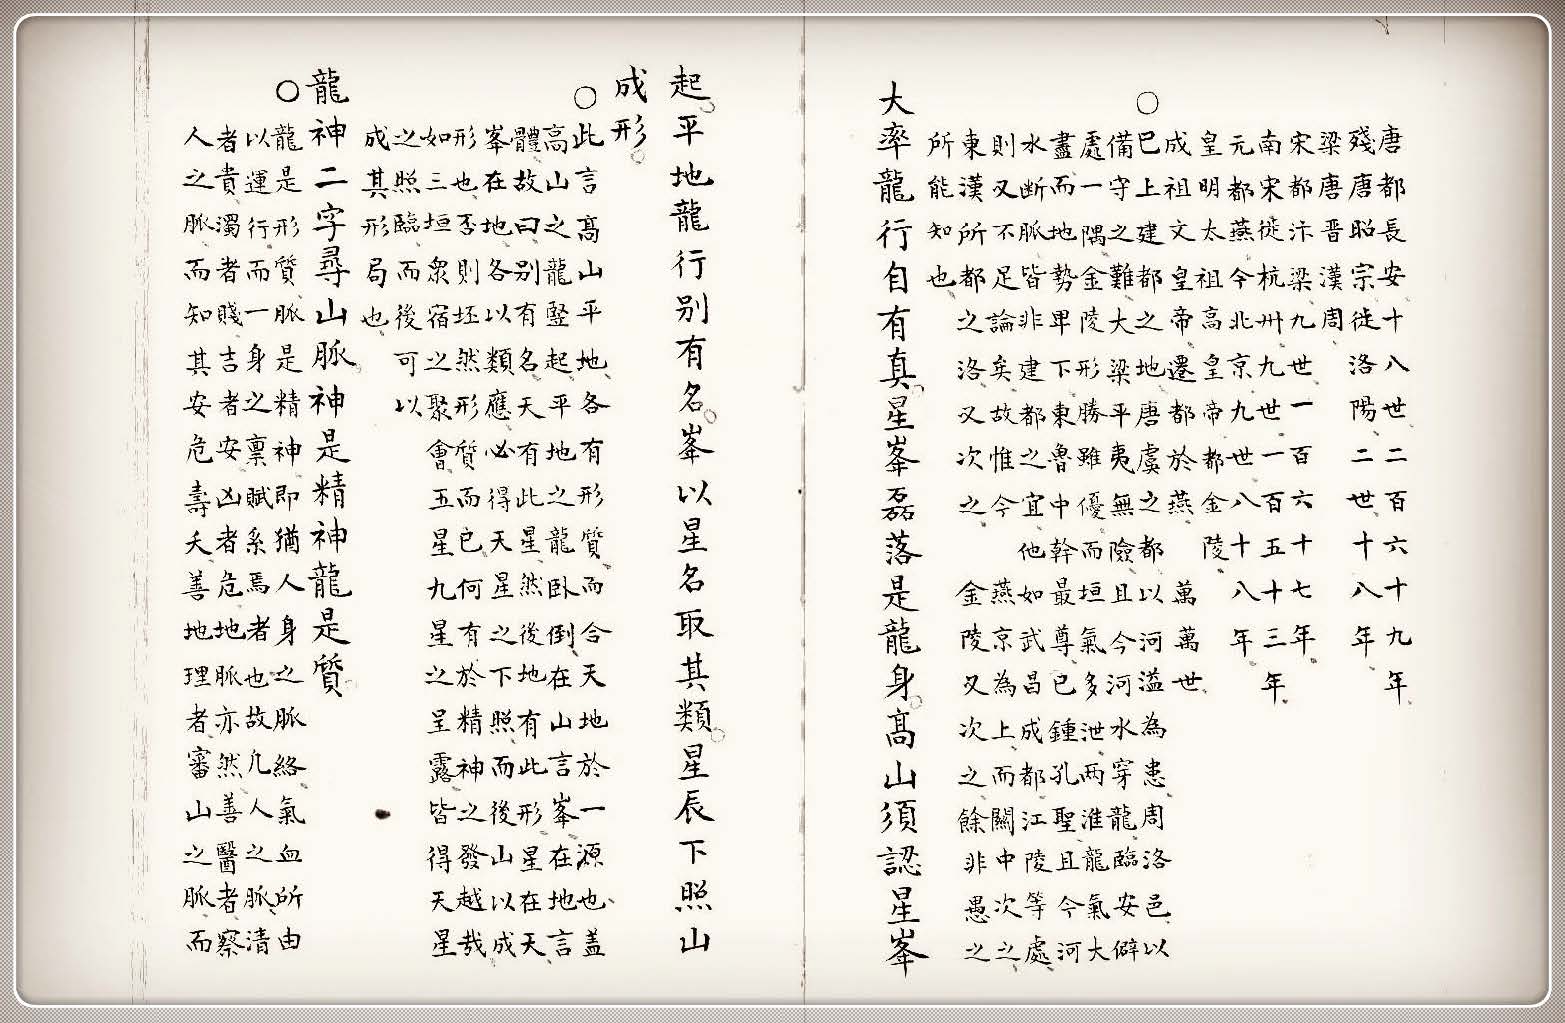 唐都長安十八世二百六十九年
殘唐昭宗徙洛陽二世十八年
梁唐晉漢周
宋都汴梁九世一百六十七年
南宋徙杭州九世一百五十三年
元都燕今北京九世八十八年
皇明太祖高皇帝都金陵
成祖文皇帝遷都於燕 萬萬世
○巳上建都之地唐虞之都以河溢為患周洛邑以
備守之難大梁平夷無險且今河水穿龍臨安僻
處一隅金陵形勝雖優而垣氣多泄兩淮龍氣大
盡而地勢畢下東魯中幹最尊已鍾孔聖且今河
水断脈皆非建都之宜他如武昌成都江陵等處
則又不足論矣故惟今燕京為上而關中次之
東漢所都之洛又次之金陵又次之餘非愚
所能知也
大率龍行自有真星峯磊落是龍身高山須認星峯
起平地龍行别有名峯以星名取其類星辰下照山
成形
○此言高山平地各有形質而合天地於一源也盖
高山之龍竪起平地之龍臥倒在山言峯在地言
體故曰别有名天有此星然後地有此形星在天
峯在地各以類應必得天星之下照而後山以成
形也否則坯然形質而已何有於精神之發越哉
如三垣衆宿之聚會五星九星之呈露皆得天星
之照臨而後可以
成其形局也
龍神二字尋山脈神是精神龍是質
○龍是形質脈是精神即猶人身之脈絡氣血所由
以運行而一身之稟賦系焉者也故凡人之脈清
者貴濁者賤吉者安凶者危地脈亦然善醫者察
人之脈而知其安危壽夭善地理者審山之脈而